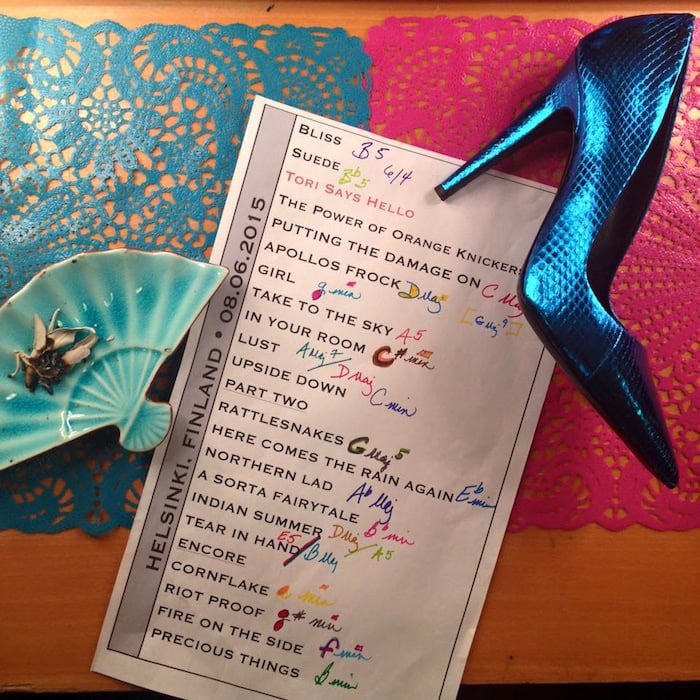 HELSINKI, FINLAND • 08.06.2015
BLISS B5
SUEDE Bb5 6/4
TORI SAYS HELLO
THE POWER OF ORANGE KNICKERS
PUTTING THE DAMAGE ON C Maj
APOLLOS FROCK D Maj [G Maj 9]
GIRL g min
TAKE TO THE SKY A5
IN YOUR ROOM C# min
LUST A Maj 7/ D Maj
UPSIDE DOWN C min
PART TWO
RATTLESNAKES G Maj 5
HERE COMES THE RAIN AGAIN Eb min
NORTHERN LAD Ab Maj
A SORTA FAIRYTALE Bb min
INDIAN SUMMER D Maj / A5
TEAR IN HAND E5/B Maj
ENCORE
CORNFLAKE a min
RIOT PROOF g# min
FIRE ON THE SIDE f min
PRECIOUS THINGS B min